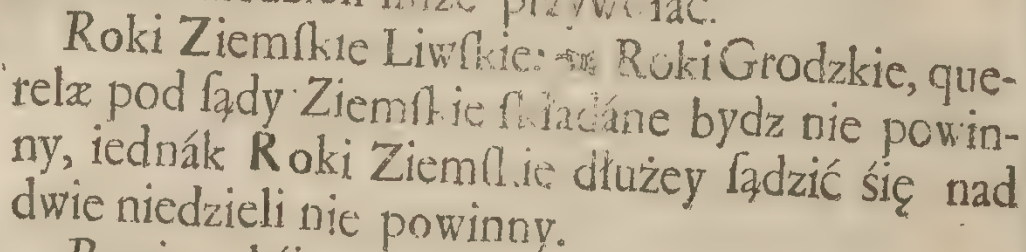 przywołać.
Roki Ziemſkie Liwſkie: Roki Grodzkie, que-
relæ pod ſądy Ziemſkie ſkładáne bydz nie powin-
ny, iednák Roki Ziemſkie dłużey ſądzić śię nad
dwie niedzieli nie powinny.